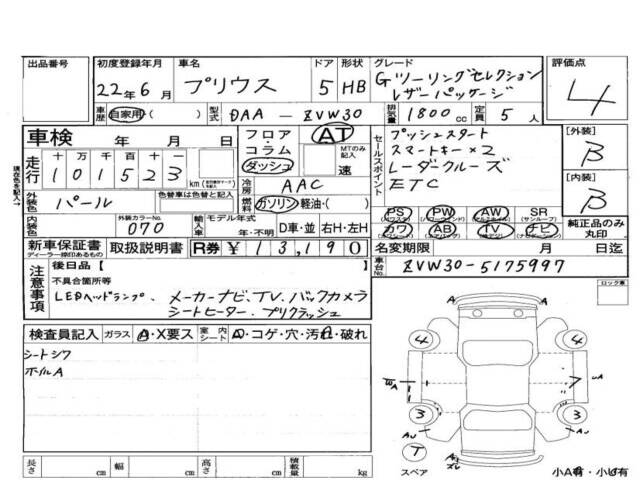 出品番号
初度登録年月
22年6月
車名
プリウス
ドア
5
形状
HB
グレード
Gツーリングセレクション
レザーパッケージ
評価点
4
車歴 自家用・( )
型式 DAA - ZVW30
排気量 1800 cc
定員 5 人
車検 年 月 日
走行
十 万 千 百 十 一
101523
km
フロア・
コラム・
ダッシュ
AT
MTのみ記入
速
セールスポイント
プッシュスタート
スマートキー×2
レーダークルーズ
ETC
[外装]
B
[内装]
B
現在色を記入→
外装色
パール
色替車は色替と記入
冷房
AAC
燃料
ガソリン・軽油・( )
PS
PW
AW
SR
(サンルーフ)
カワ
AB
TV
ナビ
純正品のみ
丸印
内装色
外装カラーNo.
070
輸入車
モデル年式
年・不明
D車・並
右H・左H
新車保証書
ディーラー捺印あるもの
取扱説明書
R券
¥13,190
名変期限 月 日迄
車台No.
ZVW30-5175997
注意事項
後日品【 】
不具合箇所等
LEDヘッドランプ、メーカーナビ、TV、バックカメラ
シートヒーター、プリクラッシュ
ロック車
検査員記入
ガラス
A・X要ス
室内
シート
D・コゲ・穴・汚れ・破れ
シートシワ
ホイルA
A
A
4
4
A
7
UA
3
3
AU
AU
T
スペア
長さ cm
幅 cm
高さ cm
積載量 kg
小A有・小U有